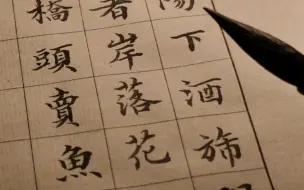 陽下酒旆
著岸落花
橋頭賣魚